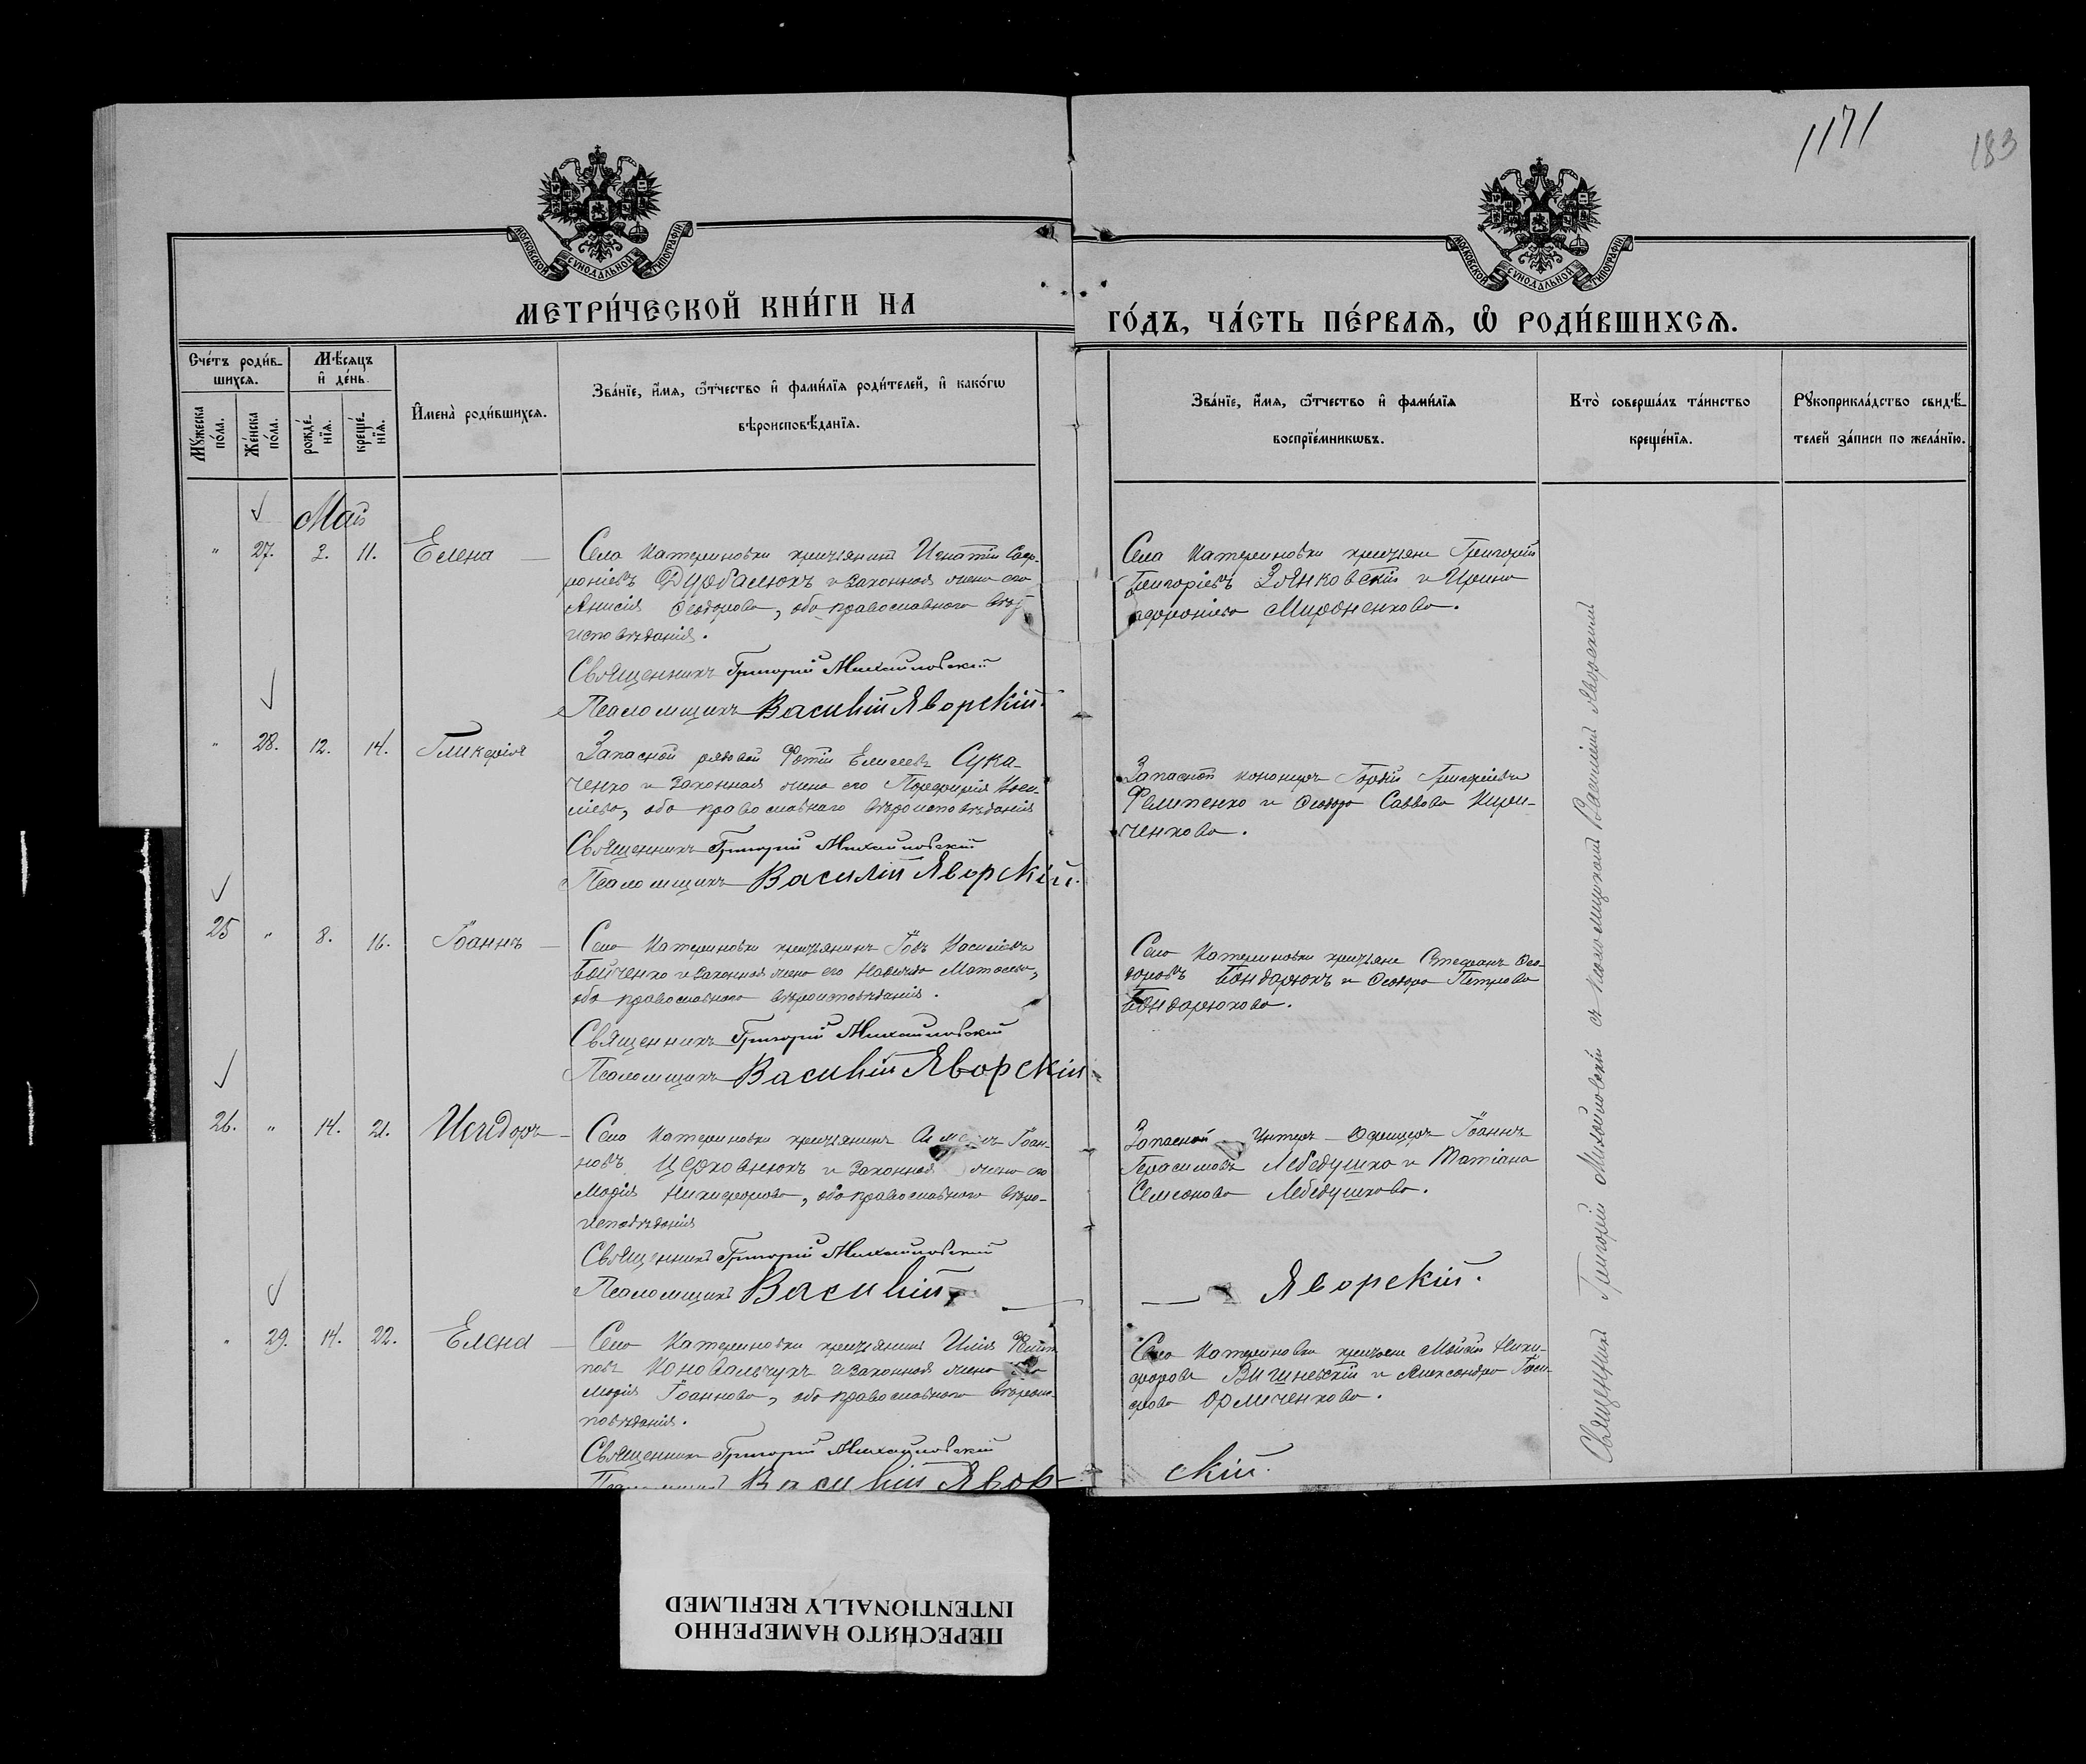 1171
183
МОСКОВСКОЙ СѴНОДАЛЬНОЙ ТИПОГРАФІИ
МОСКОВСКОЙ СѴНОДАЛЬНОЙ ТИПОГРАФІИ
МЕТРИ́ЧЕСКОЙ КНИ́ГИ НА
ГО́ДЪ, ЧА́СТЬ ПЕ́РВАѦ, Ѡ҆ РОДИ́ВШИХСѦ.
Сче́тъ роди́в-
шихсѧ.
Мꙋ́жеска по́ла.
Же́нска по́ла.
Мѣ́сѧцъ
и҆ де́нь.
рожде́-
нїѧ.
креще́-
нїѧ.
И҆мена̀ роди́вшихсѧ.
Зва́нїе, и҆́мѧ, ѻ҆́тчество и҆ фами́лїѧ роди́телей, и҆ како́гѡ
вѣроисповѣ́данїѧ.
Зва́нїе, и҆́мѧ, ѻ҆́тчество и҆ фами́лїѧ
воспрїе́мникѡвъ.
Кто̀ соверша́лъ та́инство
креще́нїѧ.
Рꙋкоприкла́дство свидѣ́-
телей за́писи по жела́нїю.
Май
" 27. 2. 11. Елена
Села Катериновки крестьянинъ Игнатій Соф-
роніевъ Дурбалюкъ и законная жена его
Анисія Ѳеодорова, оба православнаго вѣро
исповѣданія.
Священникъ Григорій Михайловскій
Псаломщикъ Василій Яворскій.
Села Катериновки крестьяне Григорій
Григоріевъ Зянковскій и Ирина
Мироненкова.
" 28. 12. 14. Гликерія
Запасной рядовой Фотій Елисеевъ Сука-
ченко и законная жена его Порфирія
оба православнаго вѣроисповѣданія
Священникъ Григорій Михайловскій
Псаломщикъ Василій Яворскій.
Запасной канониръ Гордій Григоріевъ
Филипенко и Ѳеодора Саввова Кири-
ченкова.
25 " 8. 16. Іоаннъ
Села Катериновки крестьянинъ Іовъ Василіевъ
Бойченко и законная жена его Матѳеева,
оба православнаго вѣроисповѣданія.
Священникъ Григорій Михайловскій
Псаломщикъ Василій Яворскій
Села Катериновки крестьяне Стефанъ Ѳео-
доровъ Бондарюкъ и Ѳеодора Петрова
Бондарюкова.
26. " 14. 21. Исидоръ
Села Катериновки крестьянинъ Іоан-
новъ Церковнюкъ и законная жена его
Марія Никифорова, оба православнаго вѣро-
исповѣданія
Священникъ Григорій Михайловскій
Псаломщикъ Василій
Запасной Унтеръ-Офицеръ Іоаннъ
Герасимовъ Лебедушко и Татіана
Семенова Лебедушкова.
Яворскій.
" 29. 14. 22. Елена
Села Катериновки крестьянинъ Илія Филип
повъ Коновальчукъ и законная жена его
Марія Іоаннова, оба православнаго вѣроис-
повѣданія.
Священникъ Григорій Михайловскій
Псаломщикъ Василій Явор-
Села Катериновки крестьяне Моисей Ники-
форовъ Вишневскій и Александра
скій.
Священникъ Григорій Михайловскій съ псаломщикомъ Василіемъ Яворскимъ
ПЕРЕСНЯТО НАМЕРЕННО
INTENTIONALLY REFILMED